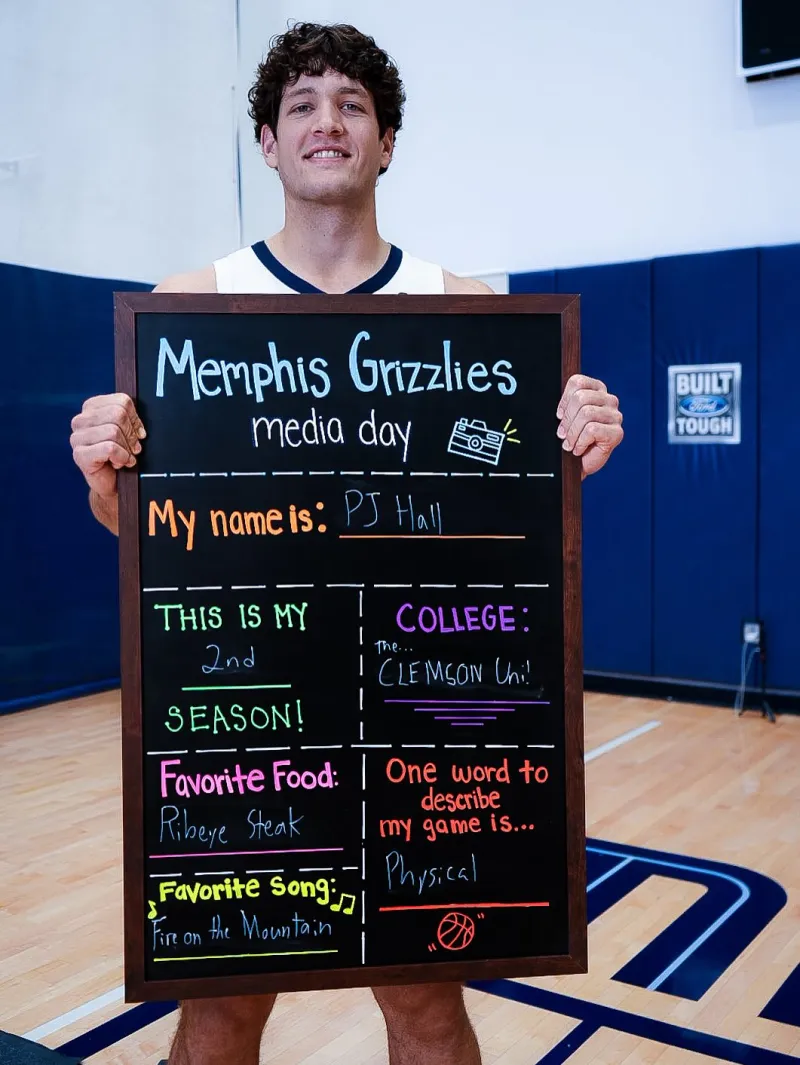 Memphis Grizzlies
media day
My name is: PJ Hall
THIS IS MY
2nd
SEASON!
COLLEGE:
the...
CLEMSON Uni!
Favorite Food:
Ribeye Steak
Favorite Song:
Fire on the Mountain
One word to
describe
my game is...
Physical
BUILT
Ford
TOUGH